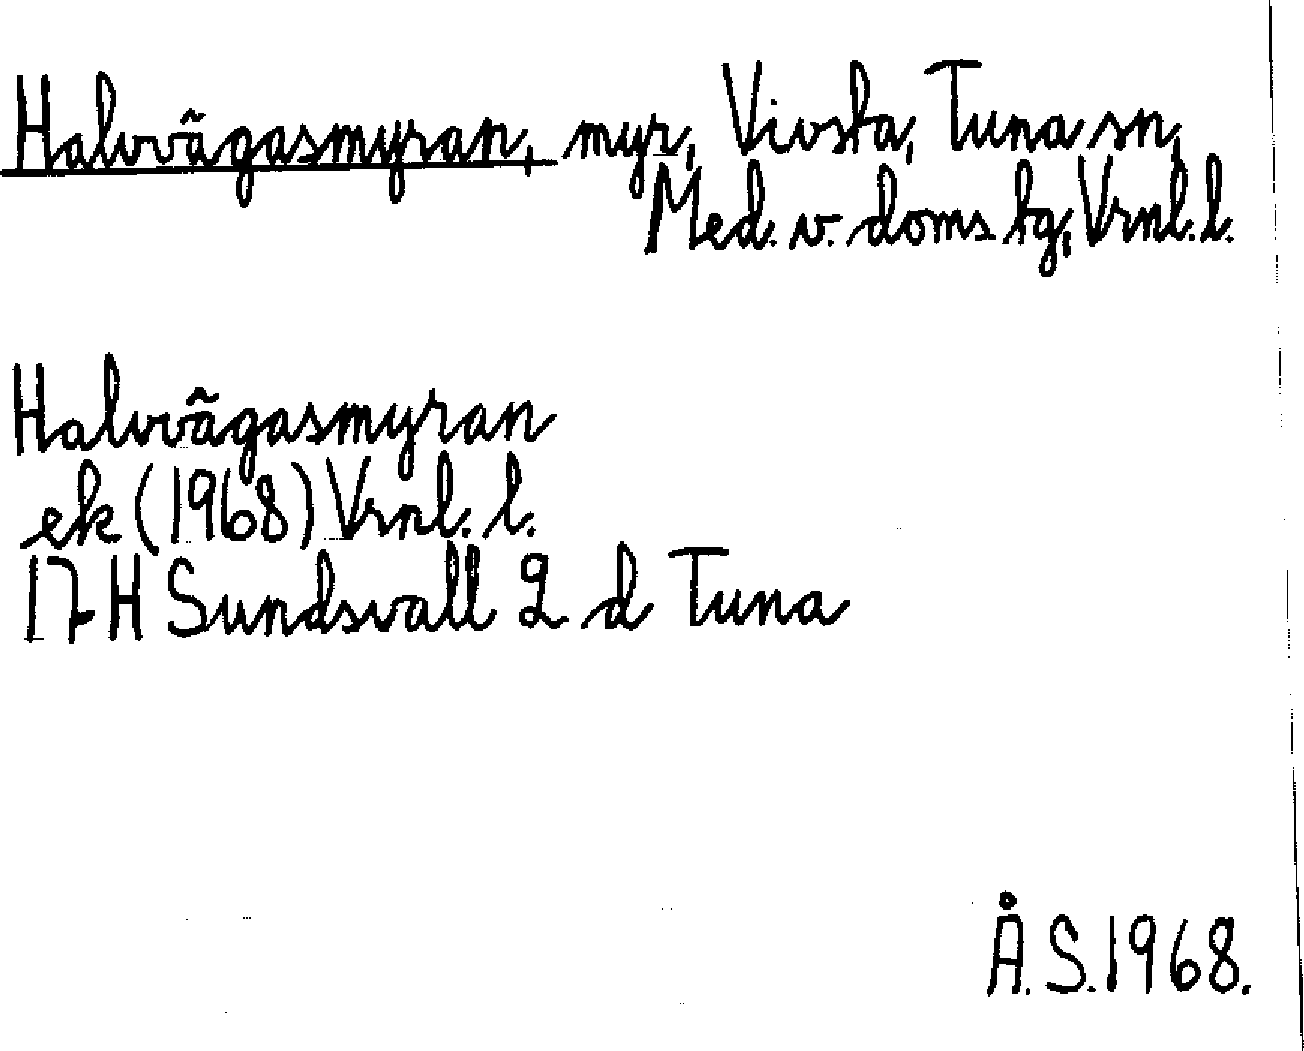 Halvvägasmyran, myr, Vivsta, Tuna sn,
Med. v. doms. tg, Vrnl. l.
Halvvägasmyran
ek (1968) Vrnl. l.
17 H Sundsvall 2 d Tuna
Å. S. 1968.